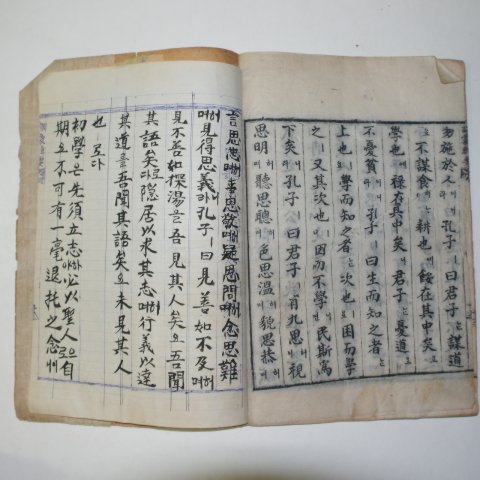 勿施於人니라 孔子ㅣ曰君子는謀道
오不謀食니耕也에餒在其中矣오
學也에祿在其中矣니君子는憂道오
不憂貧이니라 孔子ㅣ曰生而知之者는
上也오學而知之者는次也오困而學
之ㅣ又其次也니困而不學이면民斯爲
下矣니라 孔子ㅣ曰君子ㅣ有九思니視
思明며聽思聰며色思溫며貌思恭며
言思忠며事思敬며疑思問며忿思難
며見得思義니라 孔子ㅣ曰見善如不及며
見不善如探湯을吾見其人矣오吾聞
其語矣로라隱居以求其志며行義以達
其道를吾聞其語矣오未見其人
也로다
初學은先須立志호必以聖人으로自
期오不可有一毫退托之念이니